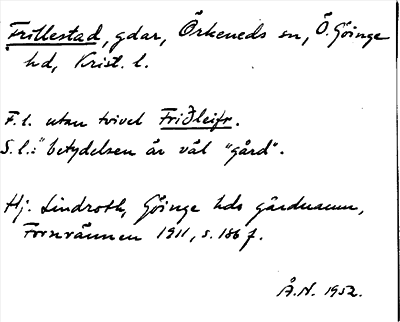 Frillestad, gdar, Örkeneds sn, Ö. Göinge
hd, Krist. l.
F.l. utan tvivel Friðleifr.
S.l.:s betydelsen är väl "gård".
Hj. Lindroth, Göinge hds gårdnamn,
Fornvännen 1911, s. 186 f.
Å.N. 1952.